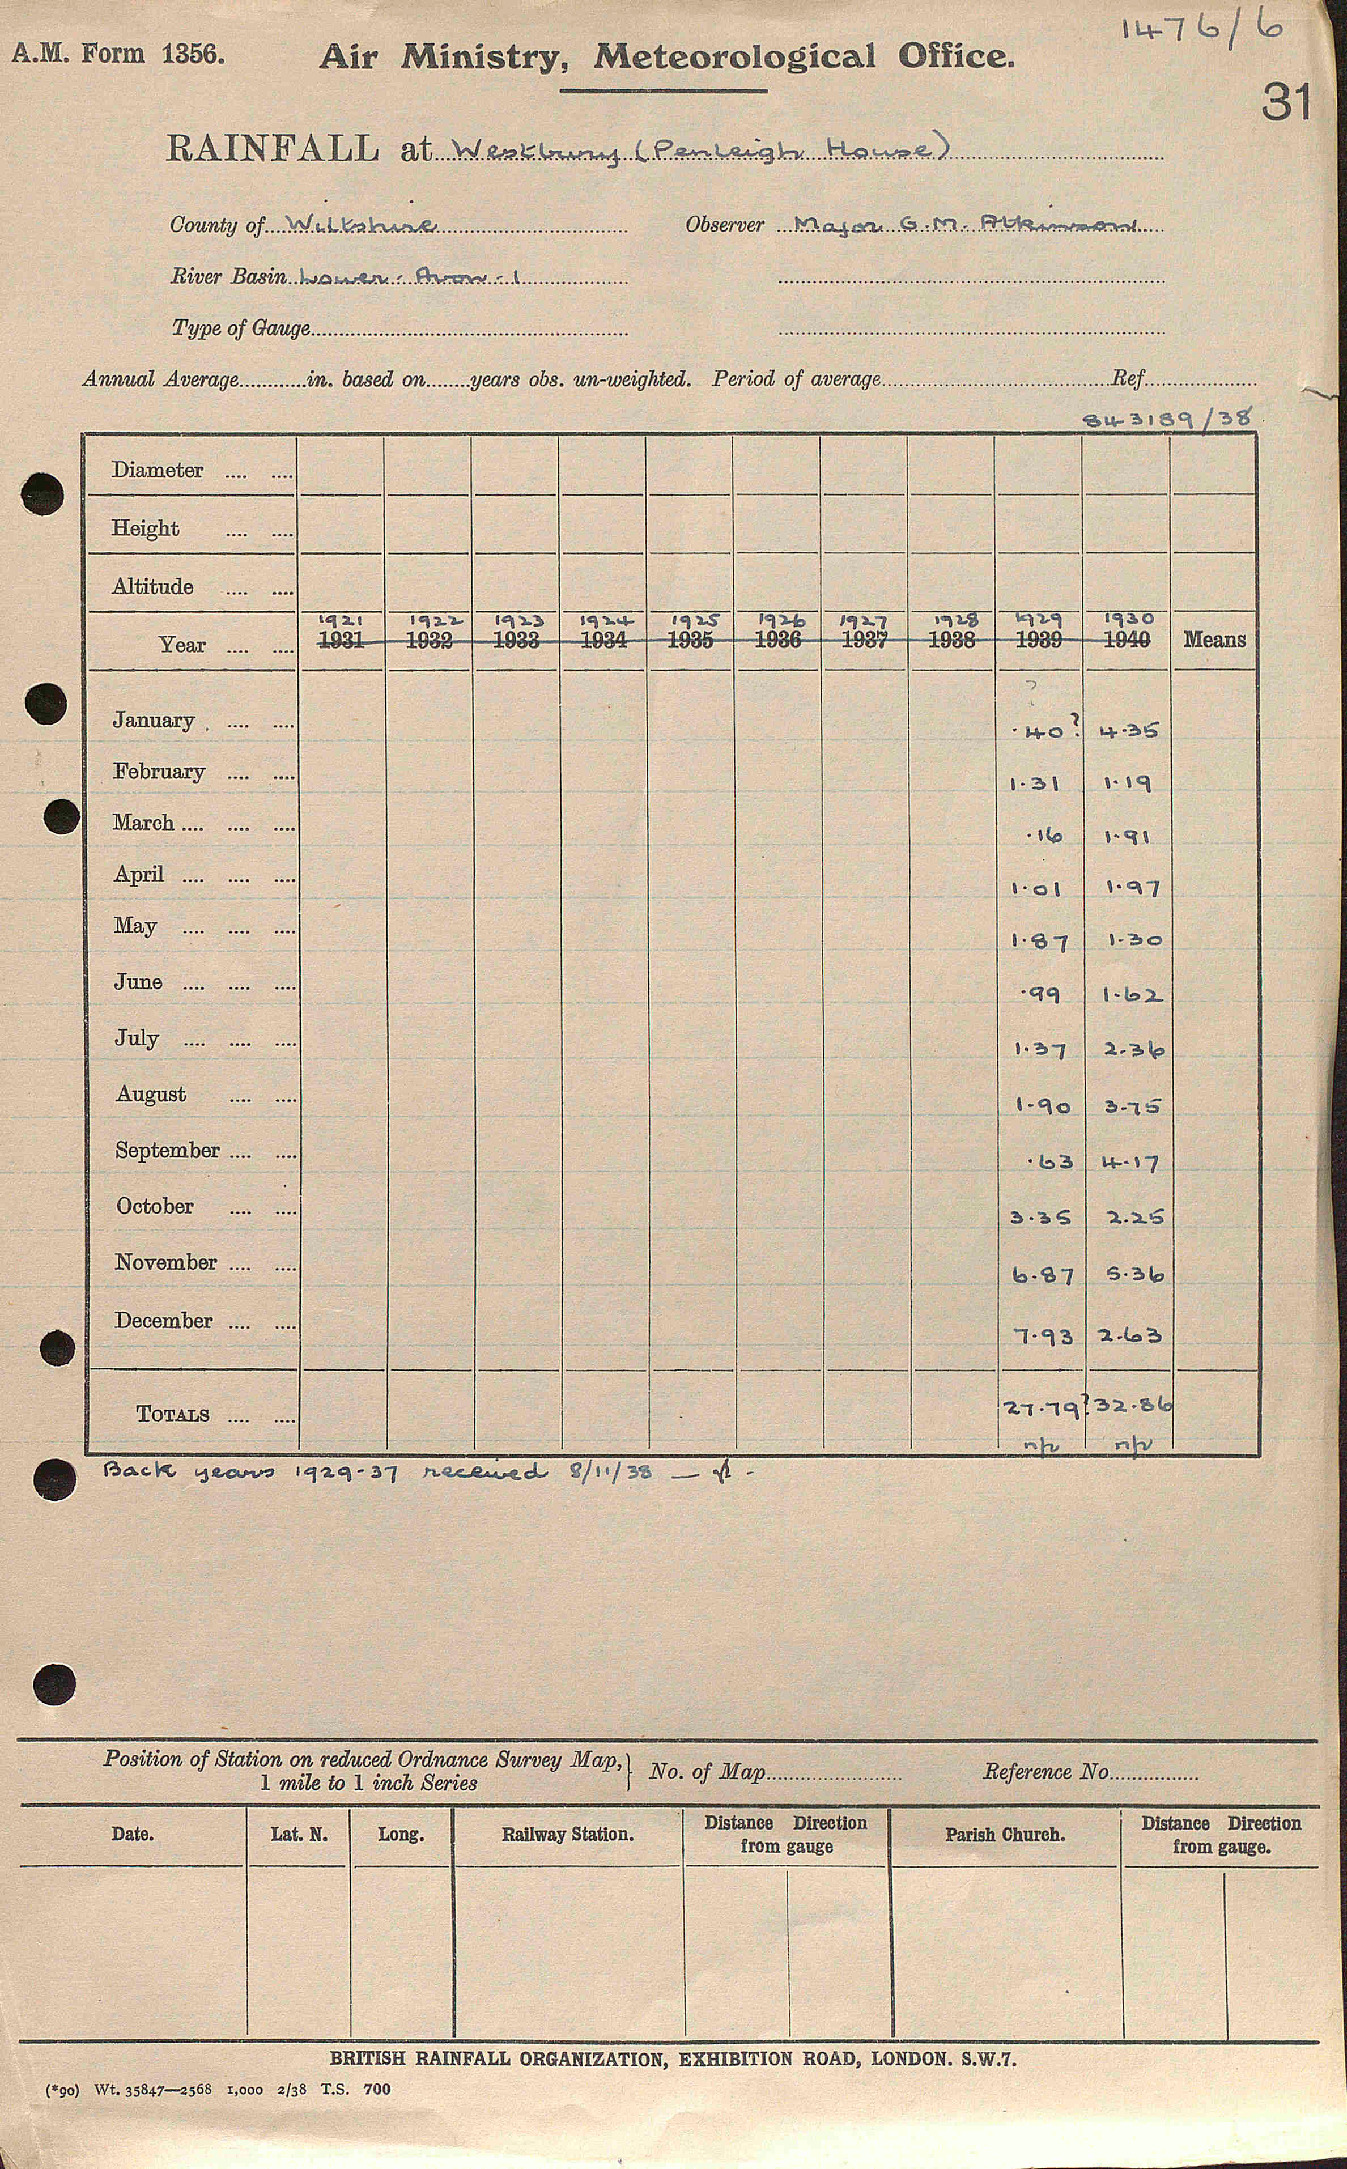 1476/6
A.M. Form 1356. Air Ministry, Meteorological Office.
31
RAINFALL at Westbury (Penleigh House)
County of Wiltshire Observer Major G.M. Atkinson
River Basin Lower-Avon-1
Type of Gauge
Annual Average in. based on years obs. un-weighted. Period of average Ref
843189/38
Diameter
Height
Altitude
1921 1922 1923 1924 1925 1926 1927 1928 1929 1930
Year 1931 1932 1933 1934 1935 1936 1937 1938 1939 1940 Means
?
January .40? 4.35
February 1.31 1.19
March .16 1.91
April 1.01 1.97
May 1.87 1.30
June .99 1.62
July 1.37 2.36
August 1.90 3.75
September .63 4.17
October 3.35 2.25
November 6.87 5.36
December 7.93 2.63
TOTALS 27.79? 32.86
n/p n/p
Back years 1929-37 received 8/11/38 —
Position of Station on reduced Ordnance Survey Map, No. of Map Reference No.
1 mile to 1 inch Series
Date. Lat. N. Long. Railway Station. Distance Direction from gauge Parish Church. Distance Direction from gauge.
BRITISH RAINFALL ORGANIZATION, EXHIBITION ROAD, LONDON. S.W.7.
(*90) Wt. 35847—2568 1,000 2/38 T.S. 700